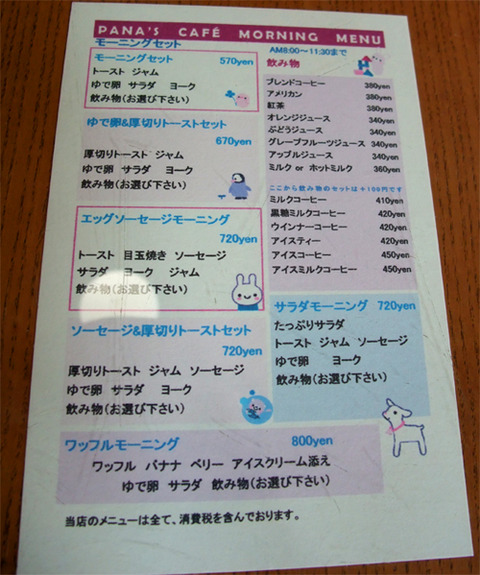 PANA'S CAFÉ MORNING MENU
モーニングセット
モーニングセット 570yen
トースト ジャム
ゆで卵 サラダ ヨーク
飲み物(お選び下さい)
ゆで卵&厚切りトーストセット
670yen
厚切りトースト ジャム
ゆで卵 サラダ ヨーク
飲み物(お選び下さい)
エッグソーセージモーニング
720yen
トースト 目玉焼き ソーセージ
サラダ ヨーク ジャム
飲み物(お選び下さい)
ソーセージ&厚切りトーストセット
720yen
厚切りトースト ジャム ソーセージ
ゆで卵 サラダ ヨーク
飲み物(お選び下さい)
AM8:00～11:30まで
飲み物
ブレンドコーヒー 380yen
アメリカン 380yen
紅茶 380yen
オレンジジュース 340yen
ぶどうジュース 340yen
グレープフルーツジュース 340yen
アップルジュース 340yen
ミルク or ホットミルク 360yen
ここから飲み物のセットは+100円です
ミルクコーヒー 410yen
黒糖ミルクコーヒー 420yen
ウインナーコーヒー 420yen
アイスティー 420yen
アイスコーヒー 450yen
アイスミルクコーヒー 450yen
サラダモーニング 720yen
たっぷりサラダ
トースト ジャム ソーセージ
ゆで卵 ヨーク
飲み物(お選び下さい)
ワッフルモーニング 800yen
ワッフル バナナ ベリー アイスクリーム添え
ゆで卵 サラダ 飲み物(お選び下さい)
当店のメニューは全て、消費税を含んでおります。